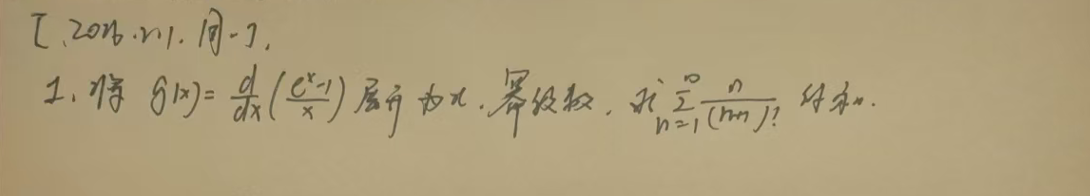 [.2026.n1.同-].
1.将 g(x)=d/dx((e^x-1)/x)展开为x.幂级数.求∑_{n=1}^{∞} n/(n+1)! 的和.